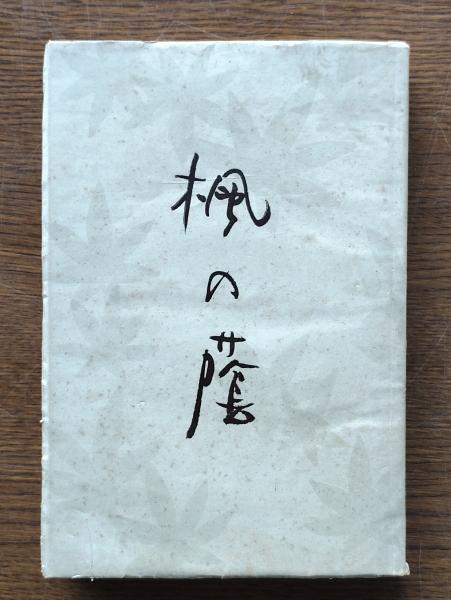 楓の蔭